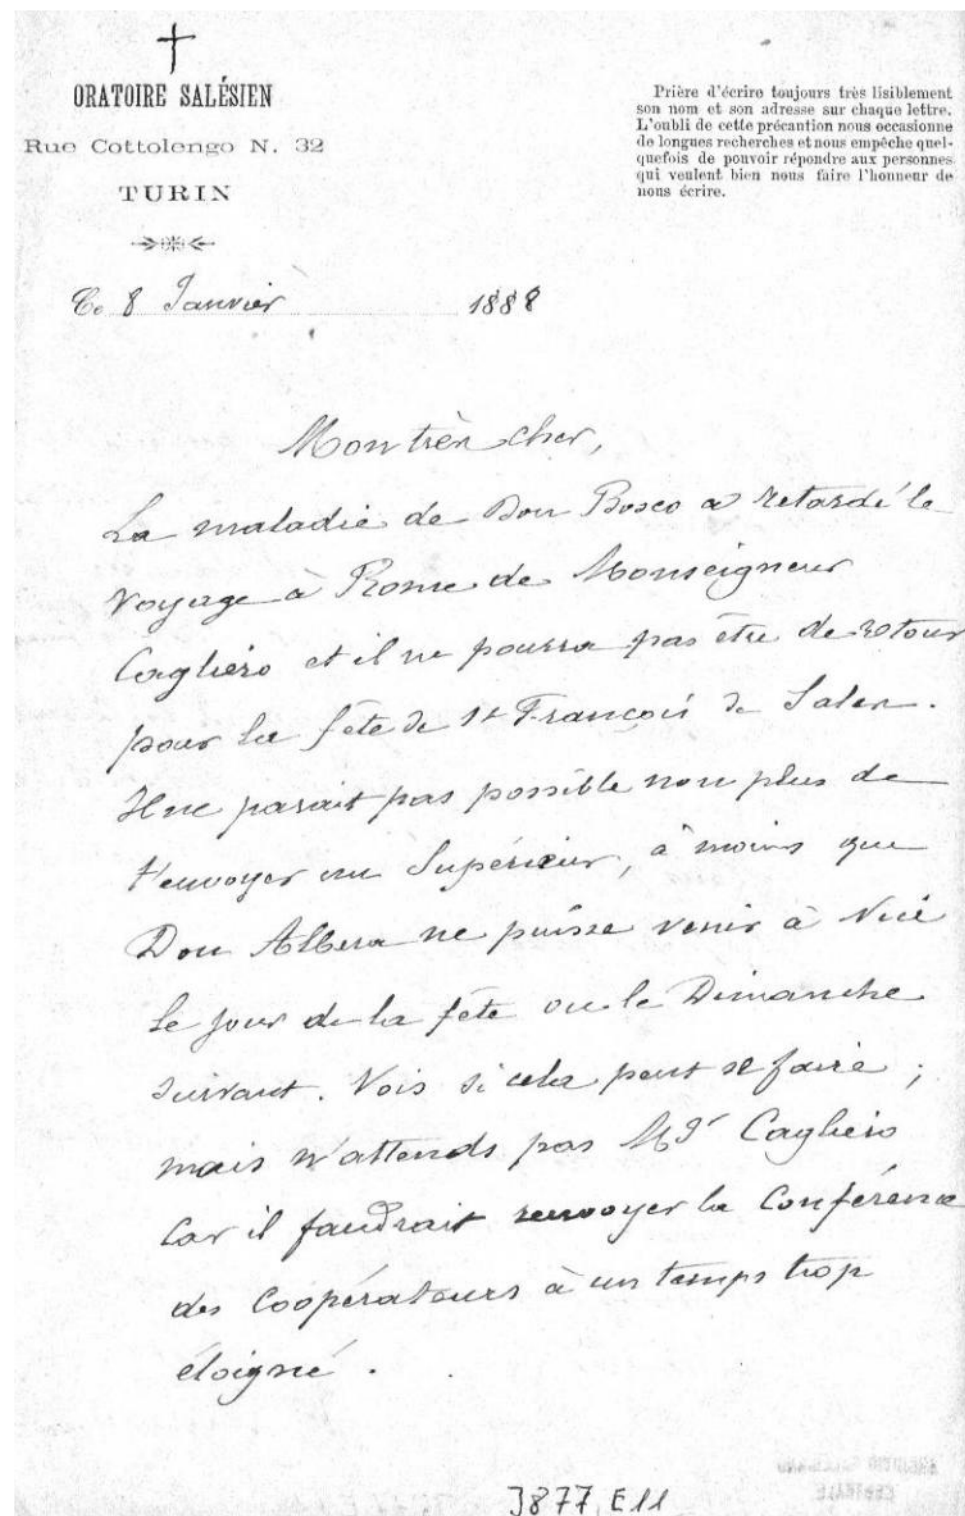 ORATOIRE SALÉSIEN
Rue Cottolengo N. 32
TURIN
Prière d'écrire toujours très lisiblement
son nom et son adresse sur chaque lettre.
L'oubli de cette précaution nous occasionne
de longues recherches et nous empêche quel-
quefois de pouvoir répondre aux personnes
qui veulent bien nous faire l'honneur de
nous écrire.
Ce 8 Janvier 1888
Mon très cher,
La maladie de Don Bosco a retardé le
voyage à Rome de Monseigneur
Cagliero et il ne pourra pas être de retour
pour la fête de St François de Sales.
Il ne parait pas possible non plus de
t'envoyer un Supérieur, à moins que
Don Albera ne puisse venir à Nice
le jour de la fête ou le Dimanche
suivant. Vois si cela peut se faire ;
mais n'attends pas Mgr Cagliero
car il faudrait renvoyer la Conférence
des Coopérateurs à un temps trop
éloigné.
3877, E11